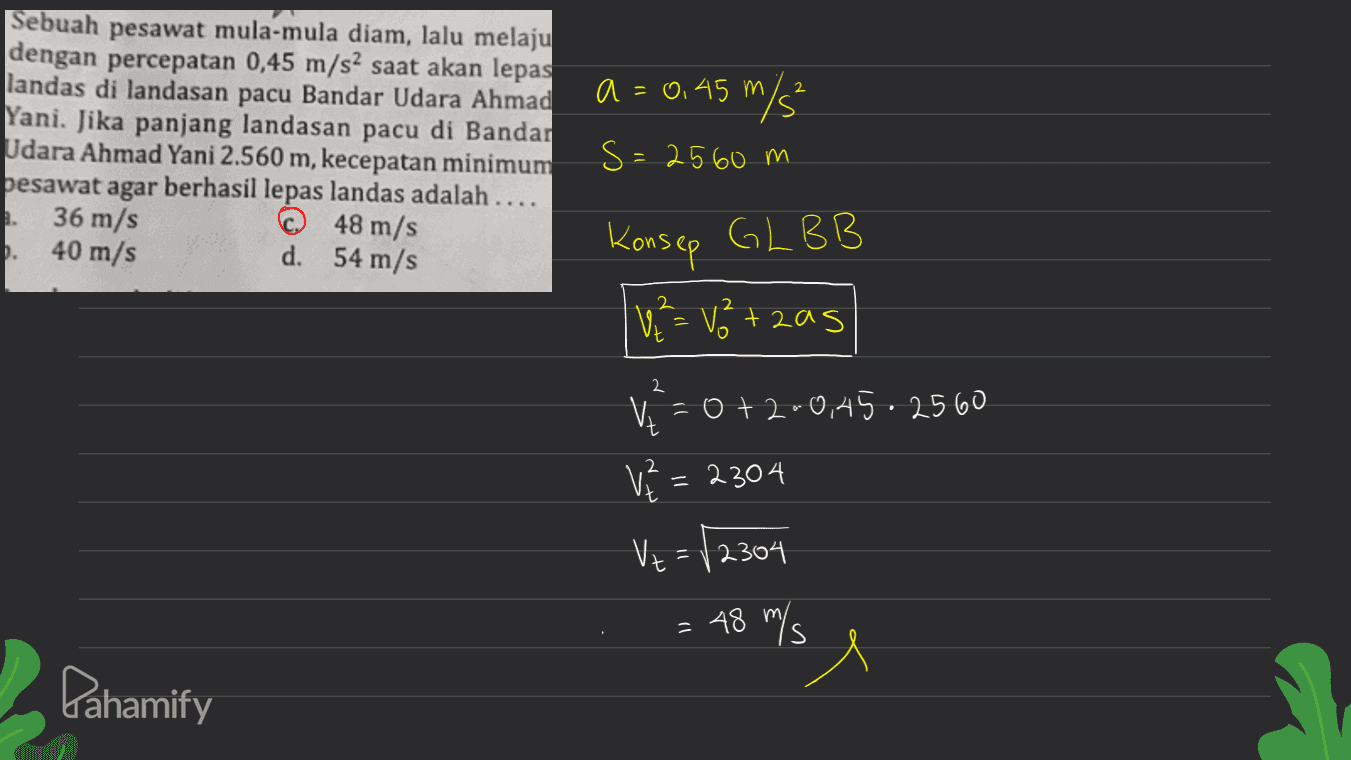 Sebuah pesawat mula-mula diam, lalu melaju
dengan percepatan 0,45 m/s² saat akan lepas
landas di landasan pacu Bandar Udara Ahmad
Yani. Jika panjang landasan pacu di Bandar
Udara Ahmad Yani 2.560 m, kecepatan minimum
pesawat agar berhasil lepas landas adalah ....
a. 36 m/s c. 48 m/s
b. 40 m/s d. 54 m/s
a = 0,45 m/s²
S = 2560 m
Konsep GLBB
Vt² = V0² + 2as
Vt² = 0 + 2 . 0,45 . 2560
Vt² = 2304
Vt = √2304
= 48 m/s
Pahamify